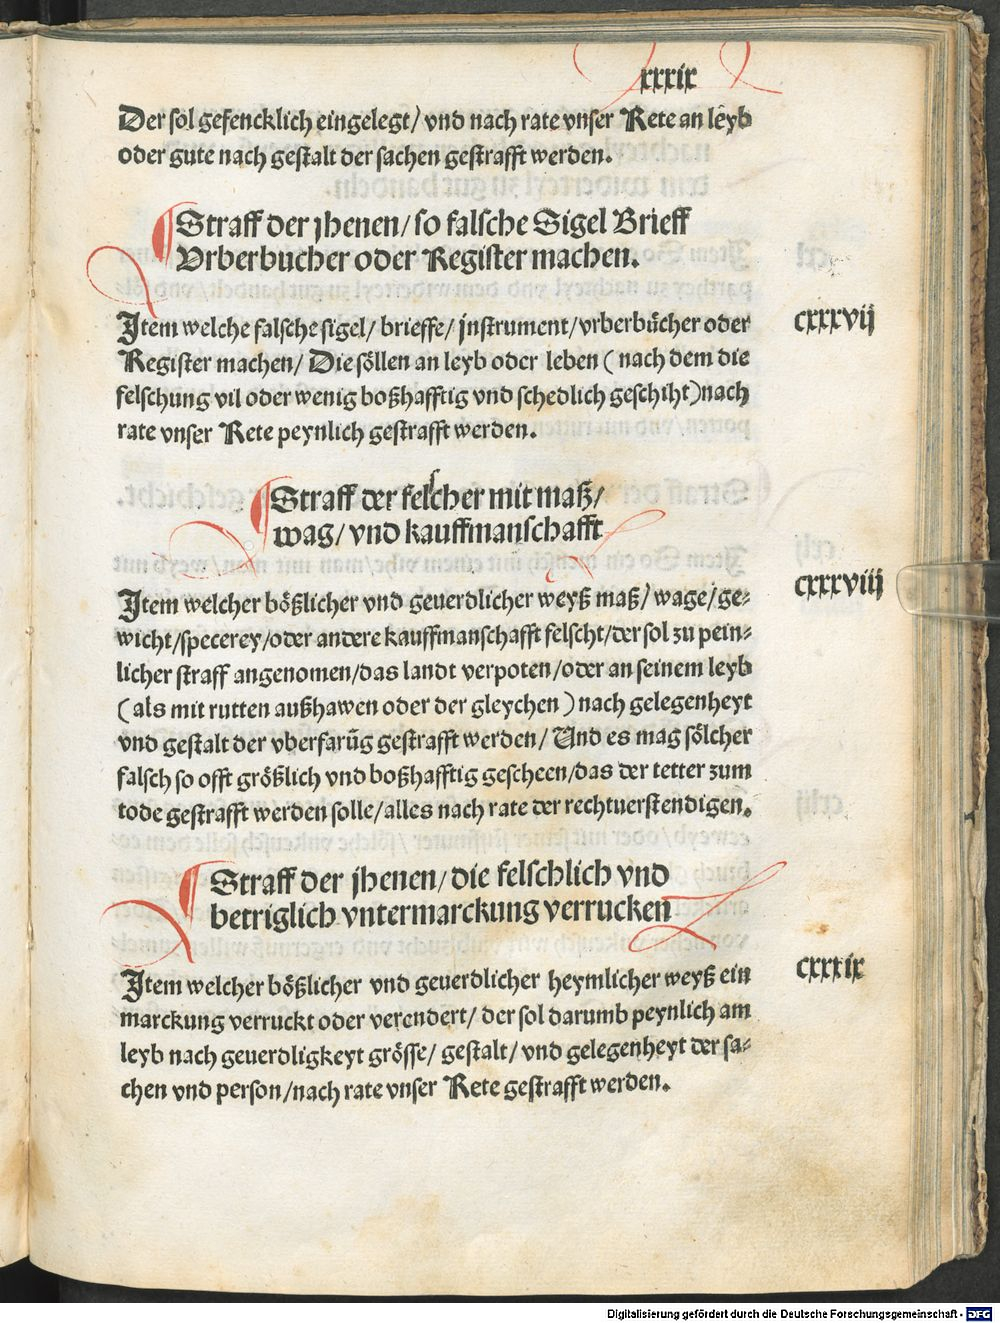 xxxix
Der sol gefencklich eingelegt/ vnd nach rate vnser Rete an leyb
oder gute nach gestalt der sachen gestrafft werden.
Straff der jhenen/ so falsche Sigel Brieff
Vrberbucher oder Register machen.
Jtem welche falsche sigel/ brieffe/ jnstrument/ vrberbücher oder
cxxxvij
Register machen/ Die söllen an leyb oder leben ( nach dem die
felschung vil oder wenig boßhafftig vnd schedlich geschiht)nach
rate vnser Rete peynlich gestrafft werden.
Straff der felscher mit maß/
wag/ vnd kauffmanschafft
cxxxviij
Jtem welcher bößlicher vnd geuerdlicher weyß maß/ wage/ ge⸗
wicht/specerey/oder andere kauffmanschafft felscht/der sol zu pein⸗
licher straff angenomen/das landt verpoten/oder an seinem leyb
( als mit rutten außhawen oder der gleychen ) nach gelegenheyt
vnd gestalt der vberfarūg gestrafft werden/ Und es mag sölcher
falsch so offt größlich vnd boßhafftig gescheen/das der tetter zum
tode gestrafft werden solle/alles nach rate der rechtuerstendigen.
Straff der jhenen/ die felschlich vnd
betriglich vntermarckung verrucken
cxxxix
Jtem welcher bößlicher vnd geuerdlicher heymlicher weyß ein
marckung verruckt oder verendert/ der sol darumb peynlich am
leyb nach geuerdligkeyt grösse/ gestalt/ vnd gelegenheyt der sa⸗
chen vnd person/nach rate vnser Rete gestrafft werden.
Digitalisierung gefördert durch die Deutsche Forschungsgemeinschaft - DFG